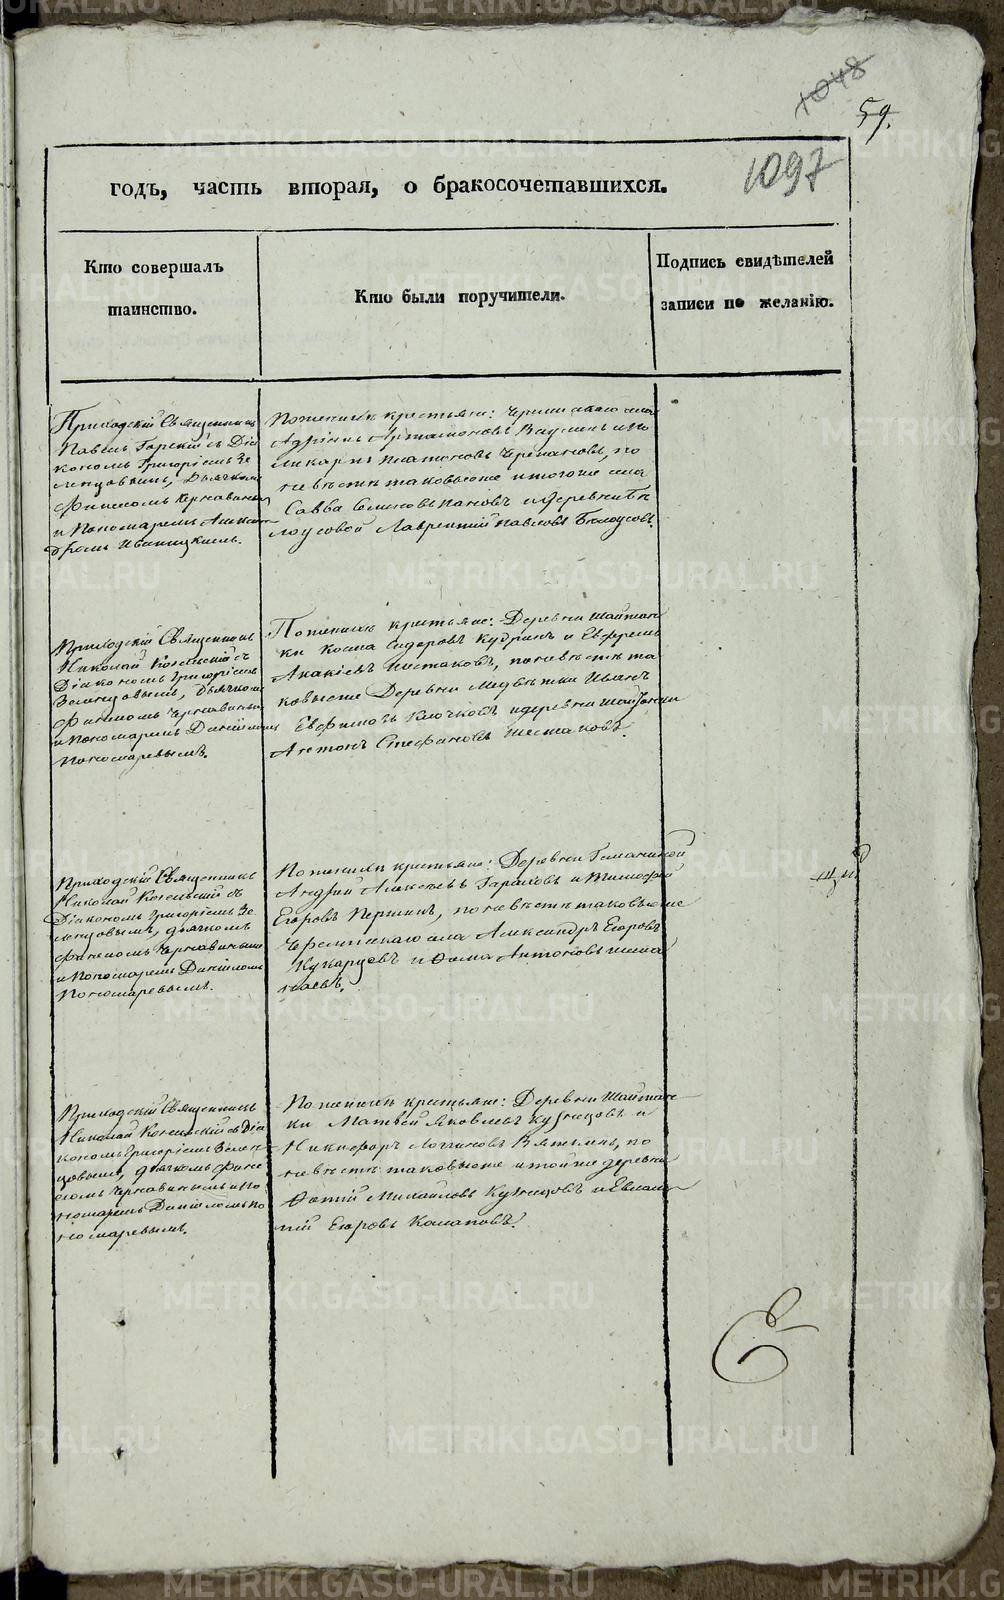 1048
59.
1097
годъ, часть вторая, о бракосочетавшихся.
Кто совершалъ
таинство.
Кто были поручители.
Подпись свидѣтелей
записи по желанію.
Приходскій Священникъ
Павелъ Горскій съ Діа
кономъ Григоріемъ Зе
ленцовымъ, Дьячкомъ
Финесомъ Чернавинымъ
и Пономаремъ Алексан
дромъ Иваницкимъ.
По женихѣ крестьяне: села
Адріанъ Артамоновъ Ваулинъ и По
ликарпъ Платоновъ Черепановъ, по
невѣстѣ таковыеже и тогоже села
Савва Семеновъ Пановъ и деревни Бѣ
лоусовой Лаврентій Павловъ Бѣлоусовъ.
Приходскій Священникъ
Николай Косельскій съ
Діакономъ Григоріемъ
Зеленцовымъ, Дьячкомъ
Финесомъ Чернавинымъ
и Пономаремъ Даніиломъ
Пономаревымъ.
По женихѣ крестьяне: Деревни Шайтан
ки Косма Сидоровъ Кудринъ и Ефремъ
Акакіевъ Шестаковъ, по невѣстѣ та
ковыеже Деревни Медвѣдки Иванъ
Евфимовъ Клочковъ и деревни Шайтанки
Антонъ Стефановъ Шестаковъ.
Приходскій Священникъ
Николай Косельскій съ
Діакономъ Григоріемъ Зе
ленцовымъ, дьячкомъ
Финесомъ Чернавинымъ
и Пономаремъ Даніиломъ
Пономаревымъ.
По женихѣ крестьяне: Деревни
Андрей Алексѣевъ и Тимофей
Егоровъ Першинъ, по невѣстѣ таковыеже
села Александръ Егоровъ
Кукарцевъ и Ѳома Антоновъ
Приходскій Священникъ
Николай Косельскій съ Діа
кономъ Григоріемъ Зелен
цовымъ, дьячкомъ Фине
сомъ Чернавинымъ и По
номаремъ Даніиломъ По
номаревымъ.
По женихѣ крестьяне: Деревни Шайтан
ки Матвей Яковлевъ Кузнецовъ и
Никифоръ Логиновъ Вяткинъ, по
невѣстѣ таковыеже и тойже деревни
Фотій Михайловъ Кузнецовъ и Евлам
пій Егоровъ Колаповъ.
METRIKI.GASO-URAL.RU